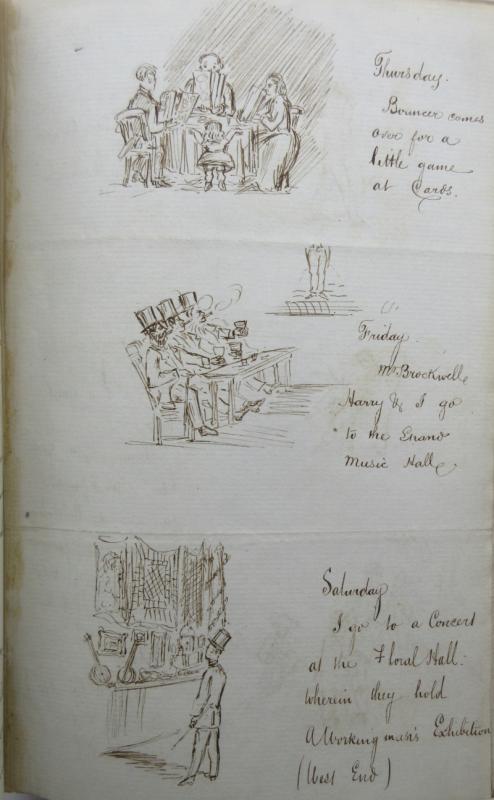 Thursday.
Bouncer comes
over for a
little game
at Cards.
Friday.
Mr. Brockwell,
Harry & I go
to the Grand
Music Hall
Saturday
I go to a Concert
at the Floral Hall:
wherein they hold
a Working man's Exhibition
(West End)